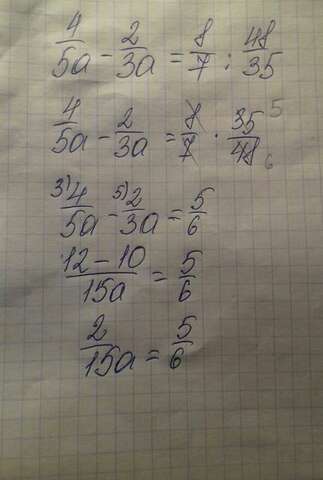 4/5a - 2/3a = 8/7 : 48/35
4/5a - 2/3a = 8/7 · 35/48 5 6
3) 4/5a - 5) 2/3a = 5/6
12-10/15a = 5/6
2/15a = 5/6